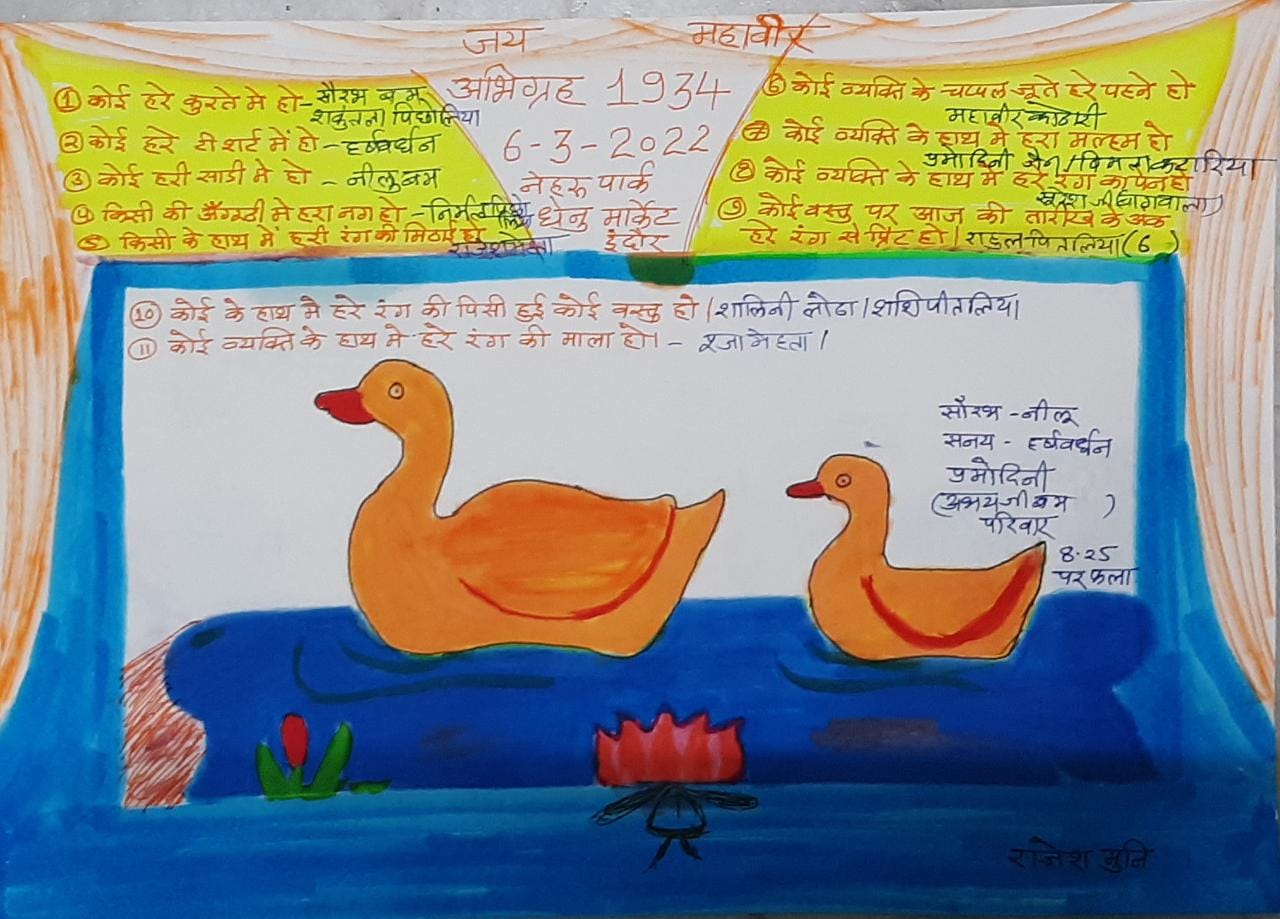 जय महावीर
अभिग्रह 1934
6-3-2022
नेहरू पार्क
धेनु मार्केट
इंदौर
① कोई हरे कुरते मे हो - सौरभ बम
शकुंतला पिछोलिया
② कोई हरे टी शर्ट में हो - हर्षवर्धन
③ कोई हरी साडी मे हो - नीलु बम
④ किसी की अँगूठी में हरा नग हो - निर्मला
⑤ किसी के हाथ में हरी रंग की मिठाई हो
⑥ कोई व्यक्ति के चप्पल जूते हरे पहने हो
महावीर कोठारी
⑦ कोई व्यक्ति के हाथ में हरा मल्हम हो
प्रमोदिनी जैन / विमला कटारिया
⑧ कोई व्यक्ति के हाथ में हरे रंग का पेन हो
सुरेश जी
⑨ कोई वस्तु पर आज की तारीख के अंक
हरे रंग से प्रिंट हो / राहुल पितलिया (6)
⑩ कोई के हाथ मे हरे रंग की पिसी हुई कोई वस्तु हो / शालिनी लोढा / शशि पीतलिया
⑪ कोई व्यक्ति के हाथ मे हरे रंग की माला हो। - मेहता /
सौरभ - नीलू
सनय - हर्षवर्धन
प्रमोदिनी
(अभय जी बम )
परिवार
8.25
पर फला
राजेश मुनि